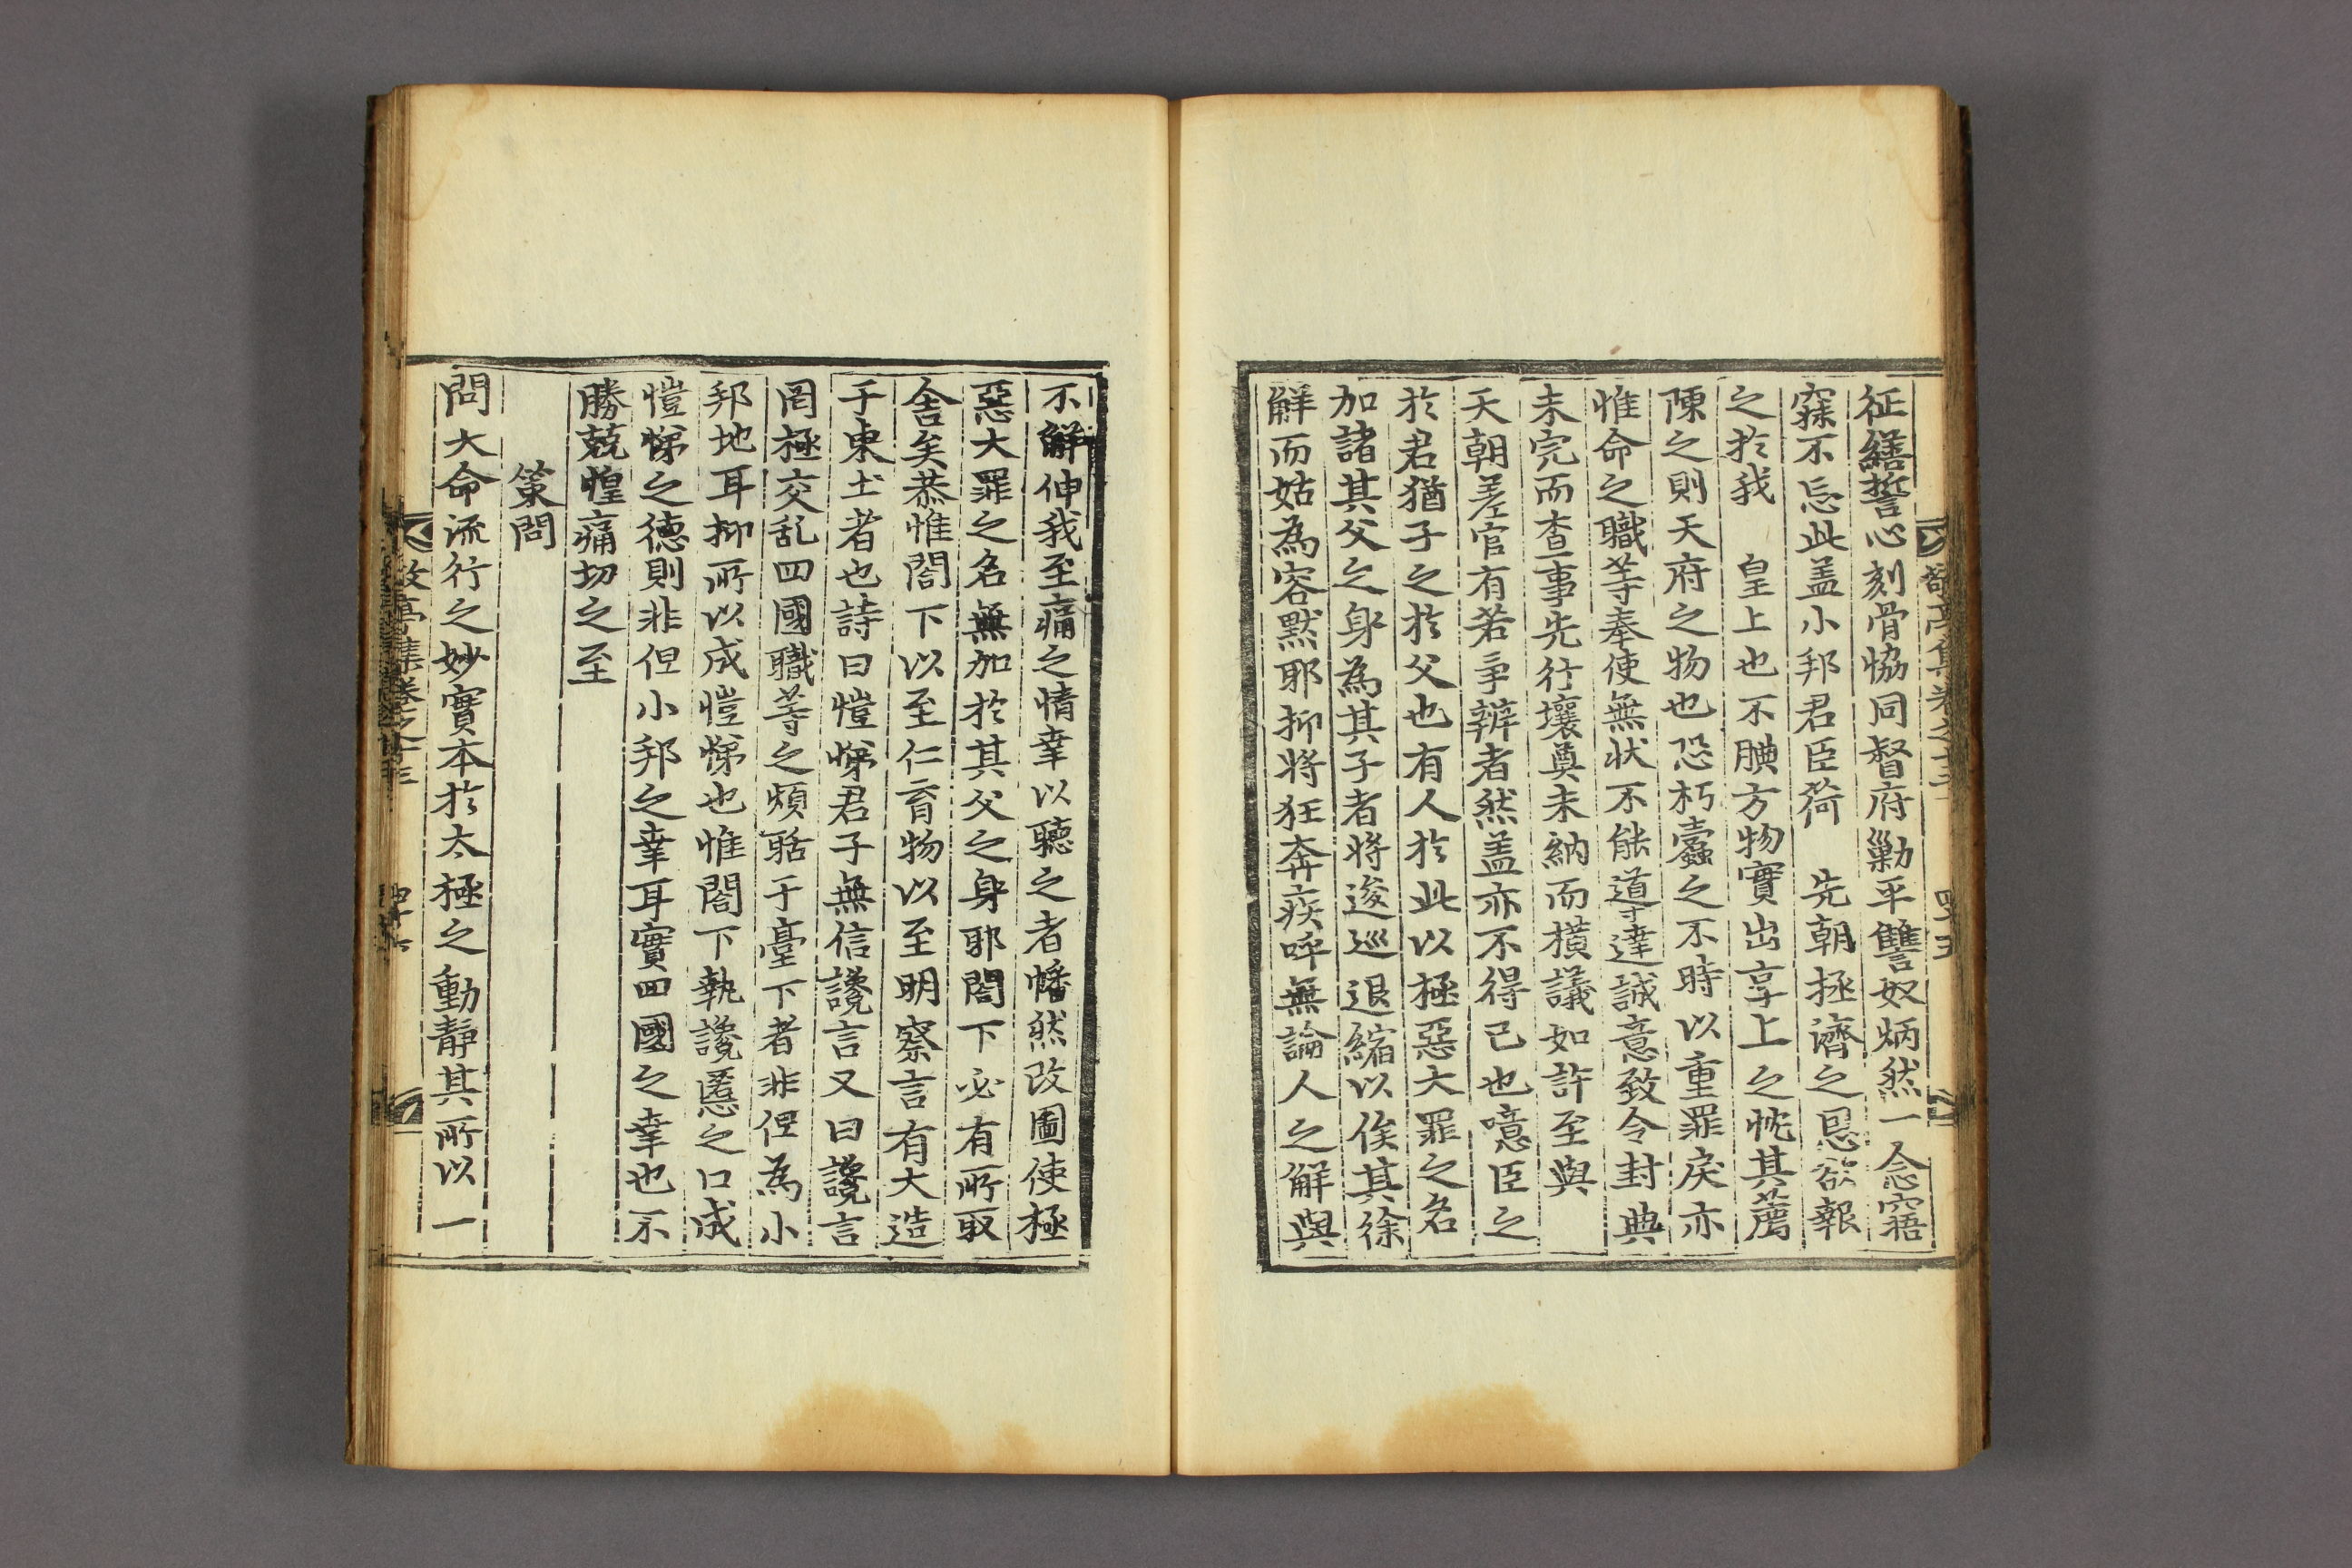 敬亭集卷之十三 四十五
征繕誓心刻骨恊同督府勦平讐奴炳然一念寤
寐不忘此盖小邦君臣荷 先朝拯濟之恩欲報
之扵我 皇上也不腆方物實出享上之忱其薦
陳之則天府之物也恐朽蠧之不時以重罪戾亦
惟命之職等奉使無狀不能導達誠意致令封典
未完而查事先行壤奠未納而橫議如許至與
天朝差官有若爭辨者然盖亦不得已也噫臣之
扵君猶子之扵父也有人扵此以極惡大罪之名
加諸其父之身為其子者將逡巡退縮以俟其徐
解而姑為容默耶抑將狂奔疾呼無論人之解與
不解伸我至痛之情幸以聽之者幡然改圖使極
惡大罪之名無加扵其父之身耶閤下必有所取
舍矣恭惟閤下以至仁育物以至明察言有大造
于東土者也詩曰愷悌君子無信讒言又曰讒言
罔極交乱四國職等之煩聒于臺下者非但為小
邦地耳抑所以成愷悌也惟閤下執讒慝之口成
愷悌之德則非但小邦之幸耳實四國之幸也不
勝兢惶痛切之至
策問
問大命流行之妙實本扵太極之動靜其所以一
敬亭集卷之十三 四十六